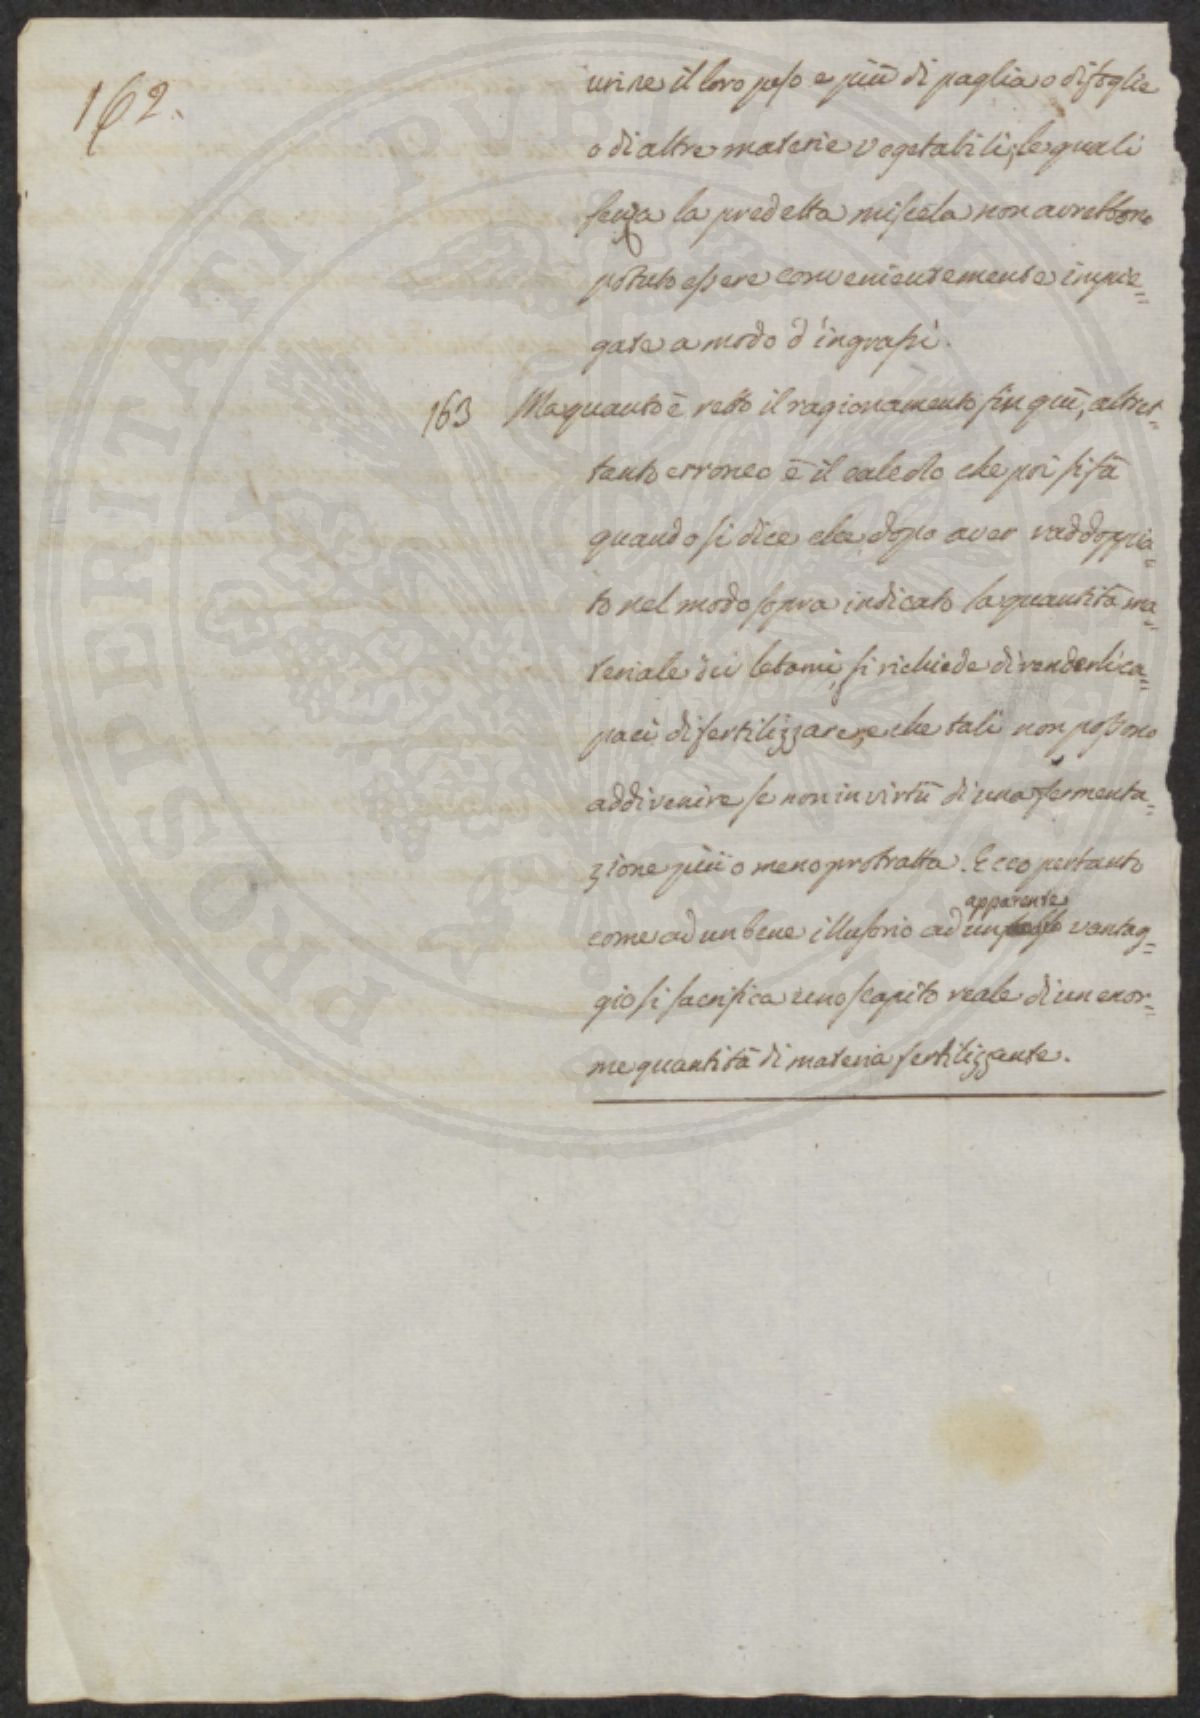 162.
urine il loro peso e più di paglia o di foglie
o di altre materie vegetabili, le quali
senza la predetta miscela non avrebbono
potuto essere convenientemente impie=
gate a modo d'ingrassi.
163 Ma quanto è retto il ragionamento sin quì, altret=
tanto erroneo è il calcolo che poi si fà
quando si dice che dopo aver raddoppia=
to nel modo sopra indicato la quantità ma=
teriale dei letami, si richiede di renderli ca=
paci di fertilizzare, e che tali non possono
addivenire se non in virtù di una fermenta=
zione più o meno protratta. Ecco pertanto
apparente
come ad un bene illusorio ad un vantag=
gio si sacrifica uno scapito reale di un enor=
me quantità di materia fertilizzante.
PROSPERITATI PVBLICAE